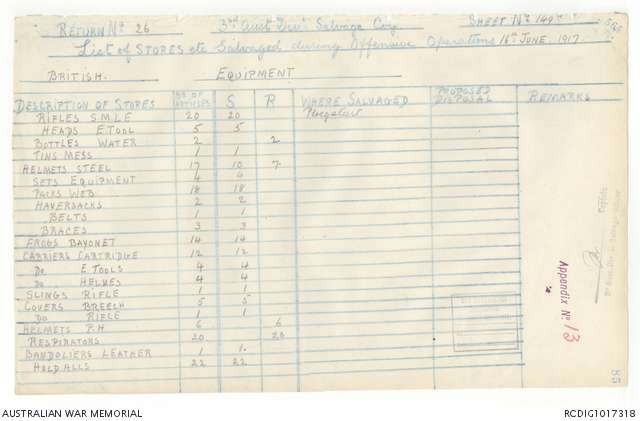 RETURN No 26 3rd Aust. Divl Salvage Coy SHEET No 149
List of STORES etc Salvaged during Offensive Operations 16th JUNE, 1917.
BRITISH. EQUIPMENT
DESCRIPTION OF STORES No OF ARTICLES S R WHERE SALVAGED PROPOSED DISPOSAL REMARKS
RIFLES S.M.L.E 20 20 Ploegsteert
HEADS E.TOOL 5 5
BOTTLES WATER 2 2
TINS MESS 1 1
HELMETS STEEL 17 10 7
SETS EQUIPMENT 4 4
PACKS WEB 18 18
HAVERSACKS 2 2
BELTS 1 1
BRACES 3 3
FROGS BAYONET 14 14
CARRIERS CARTRIDGE 12 12
Do E.TOOLS 4 4
Do HELVES 4 4
SLINGS RIFLE 1 1
COVERS BREECH 5 5
Do RIFLE 1 1
HELMETS P.H 6 6
RESPIRATORS 20 20
BANDOLIERS LEATHER 1 1
HOLDALLS 22 22
Appendix No 13
85
AUSTRALIAN WAR MEMORIAL RCDIG1017318